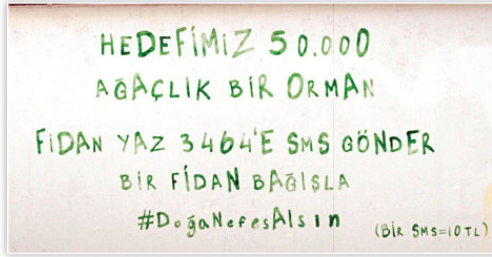 HEDEFİMİZ 50.000
AĞAÇLIK BİR ORMAN
FİDAN YAZ 3464'E SMS GÖNDER
BİR FİDAN BAĞIŞLA
#DoğaNefesAlsın
(BİR SMS=10 TL)